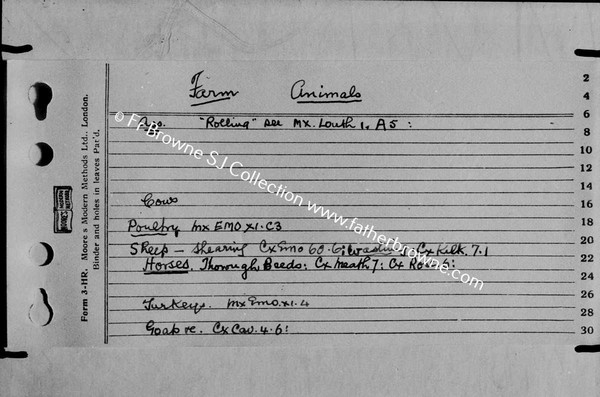 Farm Animals
"Rolling" see Mx. Louth 1. A5 :
Cows
Poultry Mx EMO XI. C3
Sheep - shearing Cx Emo 60. 6; washing, Cx Kilk. 7.1
Horses. Thorough Beeds: Cx Meath 7: Cx Ros. 6:
Turkeys. Mx Emo. XI. 4
Goats Cx Cav. 4. 6:
© Fr Browne SJ Collection www.fatherbrowne.com
Form 3-HR. Moore's Modern Methods Ltd., London.
Binder and holes in leaves Pat'd.
2
4
6
8
10
12
14
16
18
20
22
24
26
28
30